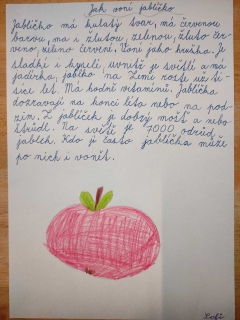 Jak voní jablíčko
Jablíčko má kulatý tvar, má červenou
barvu, ma i žlutou, zelenou, žluto čer-
veno, zeleno červení. Voní jako hruška. Je
sladké i kyselí, uvnitř je světlí a má
jadírka, jablko na Zemi roste už ti-
síce let. Má hodně vitamínů. Jablíčka
dozrávají na konci léta nebo na pod-
zim. Z jablíček je dobrý mošt a nebo
štrůdl. Na světě je 7000 odrůd
jablek. Kdo jí často jablíčka může
po nich i vonět.